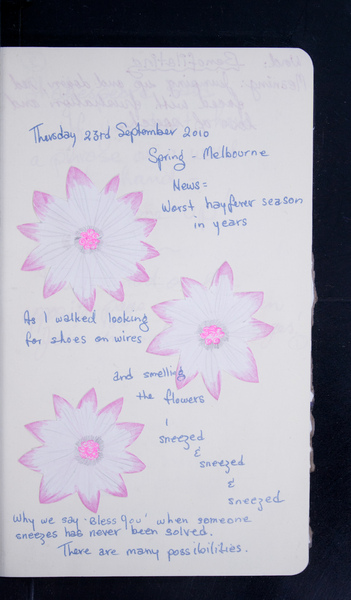 Thursday 23rd September 2010
Spring - Melbourne
News =
Worst hayfever season
in years
As I walked looking
for shoes on wires
and smelling
the flowers
I
sneezed
&
sneezed
&
sneezed
Why we say 'Bless You' when someone
sneezes has never been solved.
There are many possibilities.